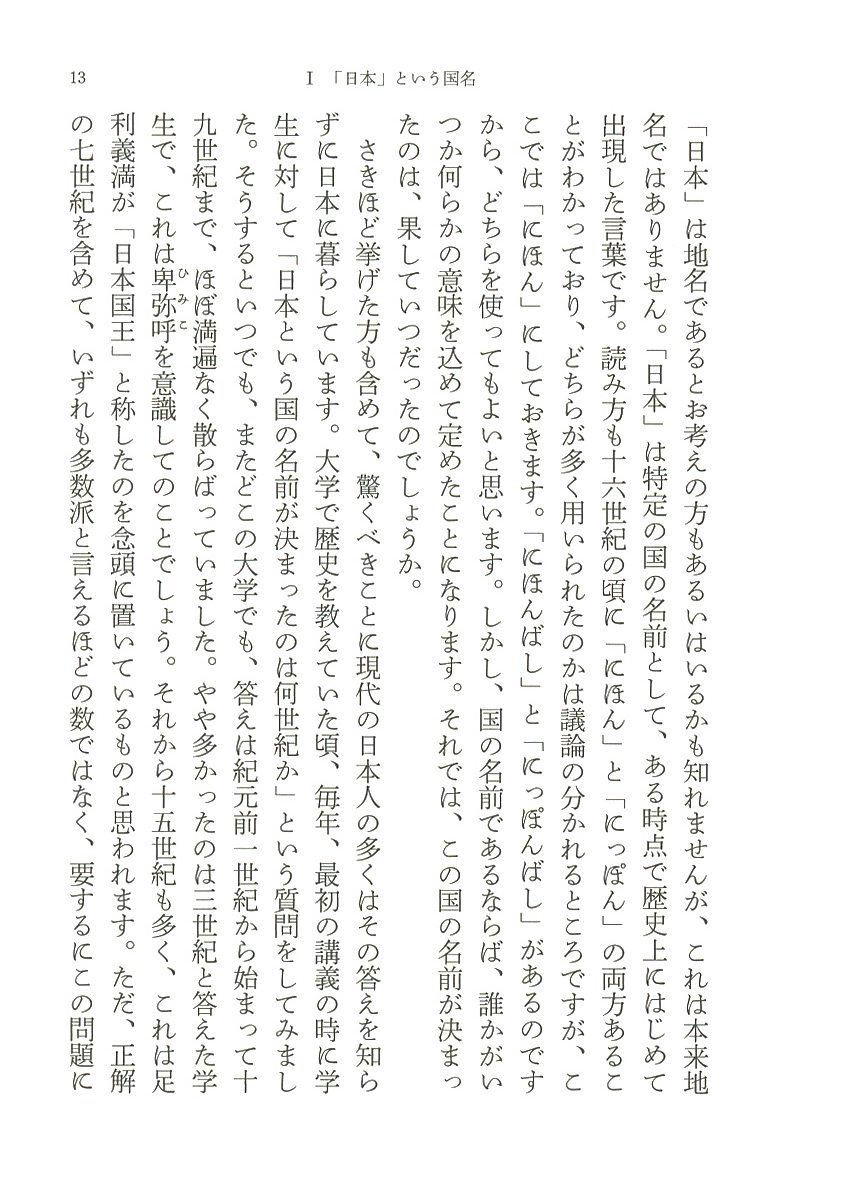 13
I 「日本」という国名
「日本」は地名であるとお考えの方もあるいはいるかも知れませんが、これは本来地
名ではありません。「日本」は特定の国の名前として、ある時点で歴史上にはじめて
出現した言葉です。読み方も十六世紀の頃に「にほん」と「にっぽん」の両方あるこ
とがわかっており、どちらが多く用いられたのかは議論の分かれるところですが、こ
こでは「にほん」にしておきます。「にほんばし」と「にっぽんばし」があるのです
から、どちらを使ってもよいと思います。しかし、国の名前であるならば、誰かがい
つか何らかの意味を込めて定めたことになります。それでは、この国の名前が決まっ
たのは、果していつだったのでしょうか。
さきほど挙げた方も含めて、驚くべきことに現代の日本人の多くはその答えを知ら
ずに日本に暮らしています。大学で歴史を教えていた頃、毎年、最初の講義の時に学
生に対して「日本という国の名前が決まったのは何世紀か」という質問をしてみまし
た。そうするといつでも、またどこの大学でも、答えは紀元前一世紀から始まって十
九世紀まで、ほぼ満遍なく散らばっていました。やや多かったのは三世紀と答えた学
生で、これは卑弥呼を意識してのことでしょう。それから十五世紀も多く、これは足
ひみこ
利義満が「日本国王」と称したのを念頭に置いているものと思われます。ただ、正解
の七世紀を含めて、いずれも多数派と言えるほどの数ではなく、要するにこの問題に